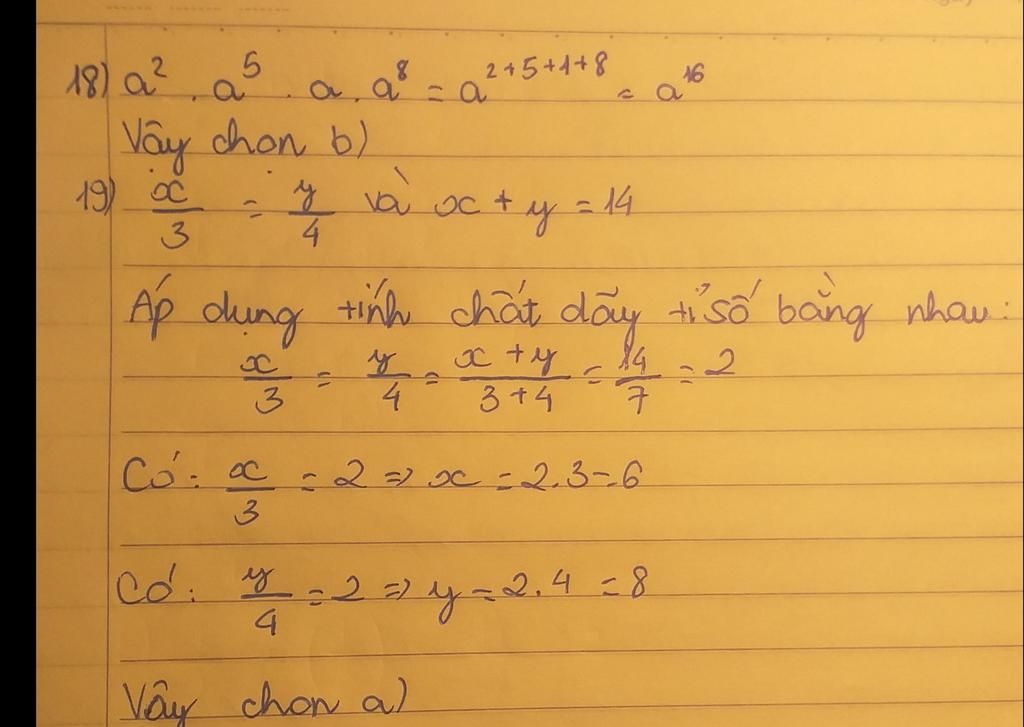 18) a² . a⁵ . a . a⁸ = a²⁺⁵⁺¹⁺⁸ = a¹⁶
Vây chon b)
19) x/3 = y/4 và x + y = 14
Áp dụng tính chất dãy tỉ số bằng nhau:
x/3 = y/4 = (x + y)/(3+4) = 14/7 = 2
Có: x/3 = 2 => x = 2.3 = 6
Có: y/4 = 2 => y = 2.4 = 8
Vây chon a)